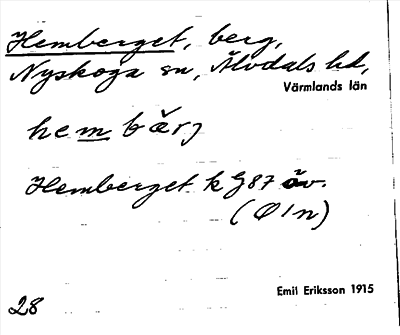 Hemberget, berg,
Nyskoga sn, Älvdals hd,
Värmlands län
hembärj
Hemberget k G87 öv.
(Ö1n)
Emil Eriksson 1915
28